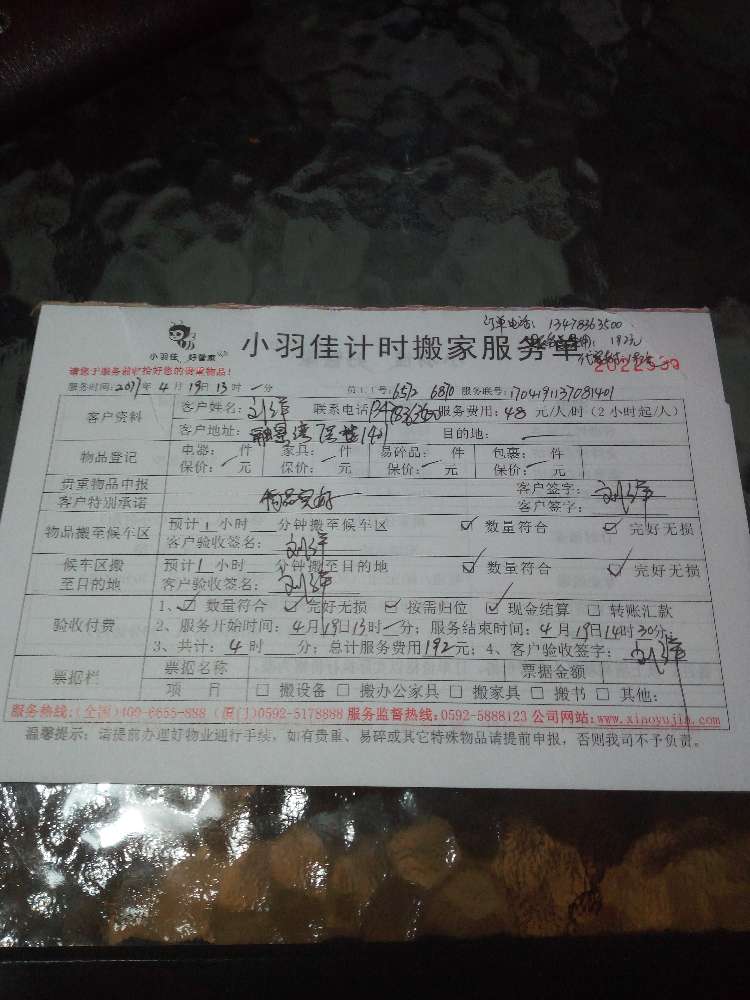 订单电话：13478363500
192元
小羽佳 好管家
小羽佳计时搬家服务单
2022539
请您于服务前收拾好您的贵重物品！
服务时间：2017年4月19日13时一分 员工工号：6572 6870 服务联号：1704191137081401
客户资料 客户姓名：刘洋 联系电话 服务费用：48元/人/时（2小时起/人）
客户地址： 1401 目的地：
物品登记 电器： 件 家具： 件 易碎品： 件 包裹： 件
保价： 元 保价： 元 保价： 元 保价： 元
贵重物品申报 客户签字：刘洋
客户特别承诺 物品完好 客户签字：
物品搬至候车区 预计1小时 分钟搬至候车区 ☑ 数量符合 ☑ 完好无损
客户验收签名：刘洋
候车区搬至目的地 预计1小时 分钟搬至目的地 ☑ 数量符合 ☑ 完好无损
客户验收签名：刘洋
验收付费 1、☑ 数量符合 ☑ 完好无损 ☑ 按需归位 ☑ 现金结算 □ 转账汇款
2、服务开始时间：4月19日13时一分；服务结束时间：4月19日14时30分
3、共计：4时 分；总计服务费用192元；4、客户验收签字：刘洋
票据栏 票据名称 票据金额
项 目 □ 搬设备 □ 搬办公家具 □ 搬家具 □ 搬书 □ 其他：
服务热线：(全国)400-6655-888 (厦门)0592-5178888 服务监督热线：0592-5888123 公司网站：www.xiaoyujia.com
温馨提示：请提前办理好物业通行手续，如有贵重、易碎或其它特殊物品请提前申报，否则我司不予负责。